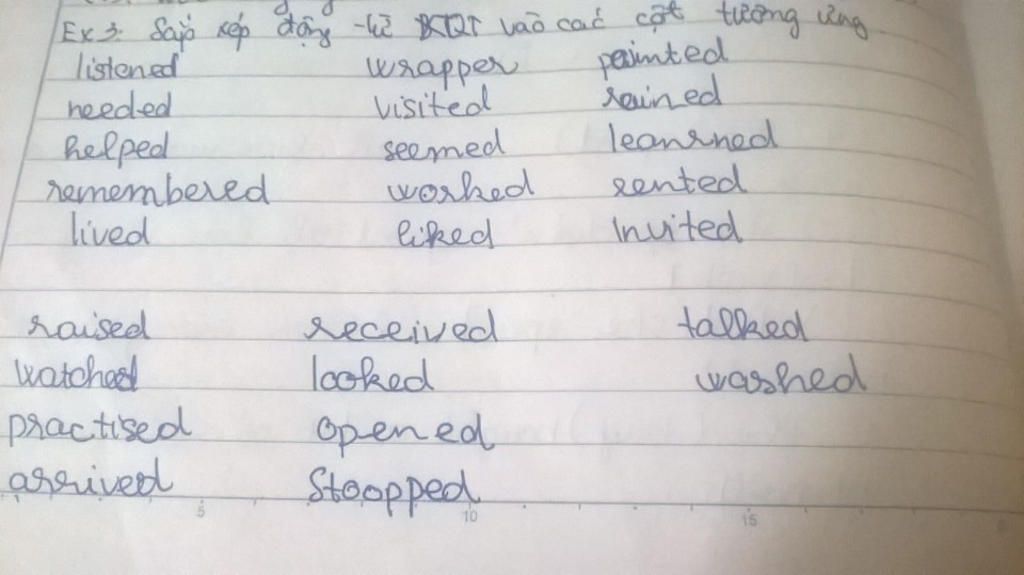 Ex 3: Sắp xếp động từ BTQT vào các cột tương ứng
listened wrapper painted
needed visited rained
helped seemed leanrned
remembered worked rented
lived liked Invited
raised received talked
watched looked washed
practised opened
arrived Stoopped
5 10 15